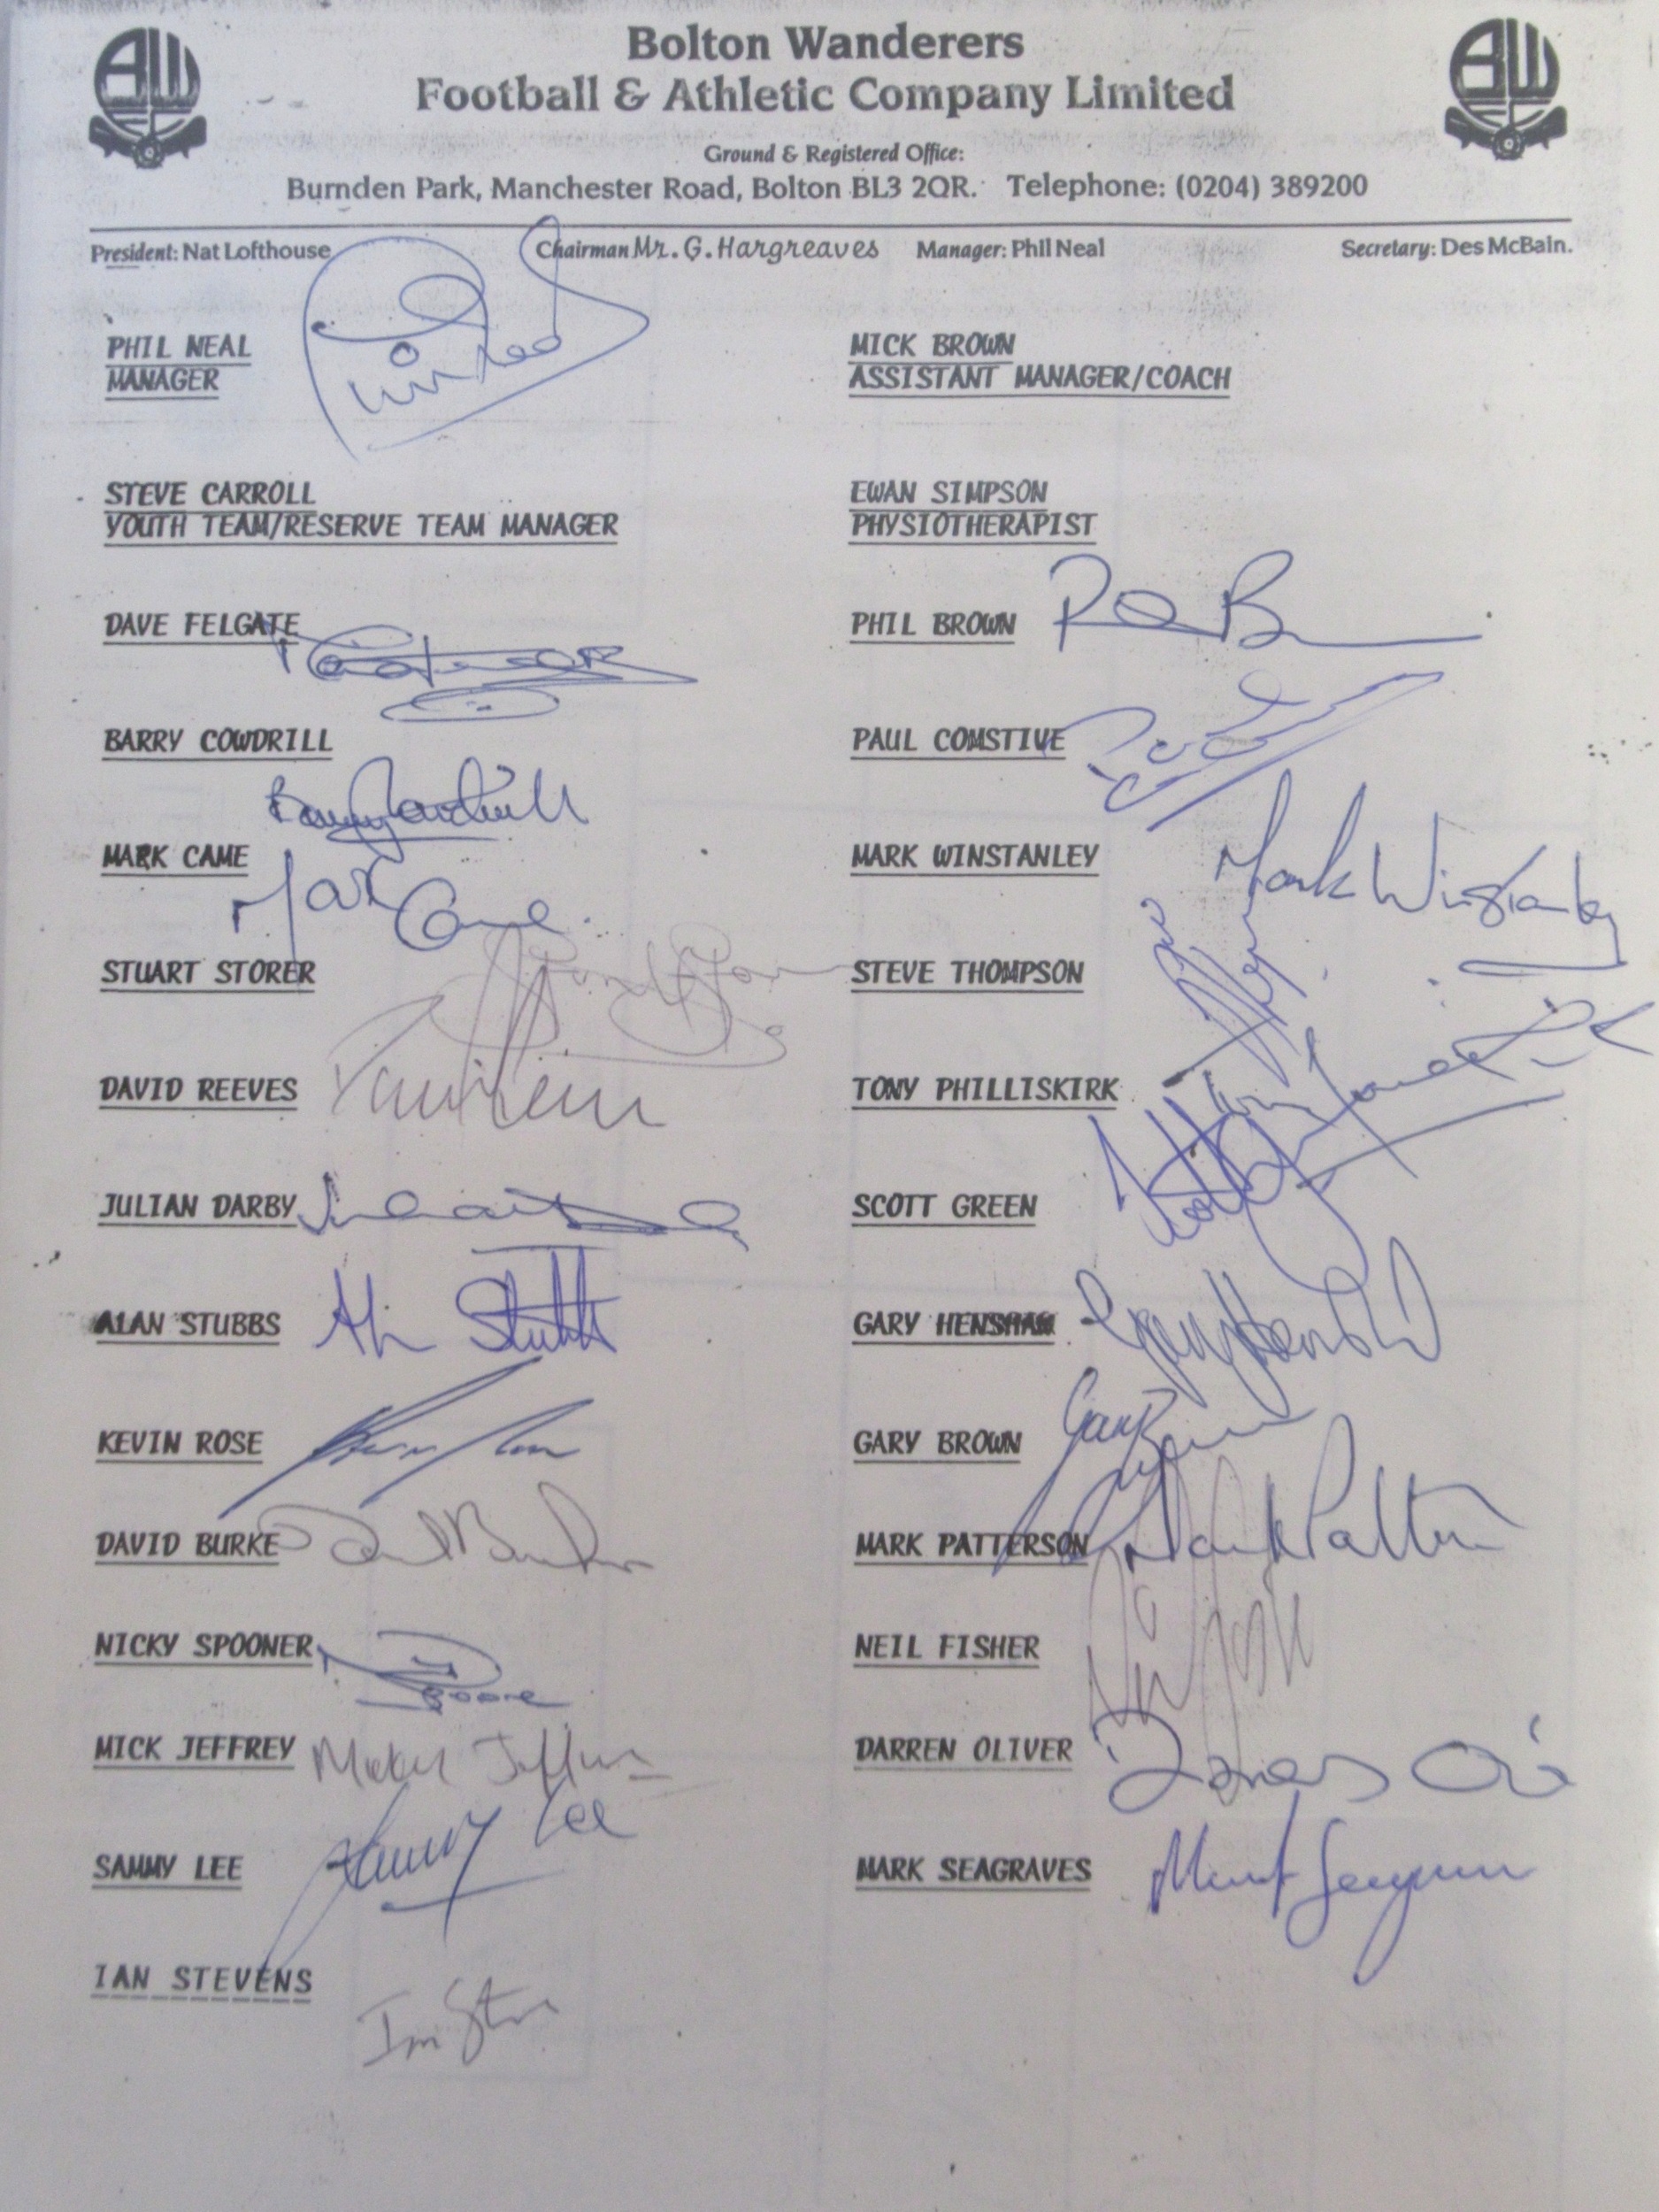 BW
Bolton Wanderers
BW
Football & Athletic Company Limited
Ground & Registered Office:
Burnden Park, Manchester Road, Bolton BL3 2QR. Telephone: (0204) 389200
President: Nat Lofthouse Chairman Mr. G. Hargreaves Manager: Phil Neal Secretary: Des McBain.
PHIL NEAL
MANAGER
MICK BROWN
ASSISTANT MANAGER/COACH
STEVE CARROLL
YOUTH TEAM/RESERVE TEAM MANAGER
EWAN SIMPSON
PHYSIOTHERAPIST
DAVE FELGATE
PHIL BROWN
BARRY COWDRILL
Barry Cowdrill
PAUL COMSTIVE
MARK CAME
Mark Came
MARK WINSTANLEY
Mark Winstanley
STUART STORER
STEVE THOMPSON
DAVID REEVES
TONY PHILLISKIRK
JULIAN DARBY
SCOTT GREEN
ALAN STUBBS
Alan Stubbs
GARY HENSHAW
KEVIN ROSE
GARY BROWN
Gary Brown
DAVID BURKE
David Burke
MARK PATTERSON
Mark Patterson
NICKY SPOONER
NEIL FISHER
MICK JEFFREY
DARREN OLIVER
SAMMY LEE
Sammy Lee
MARK SEAGRAVES
IAN STEVENS